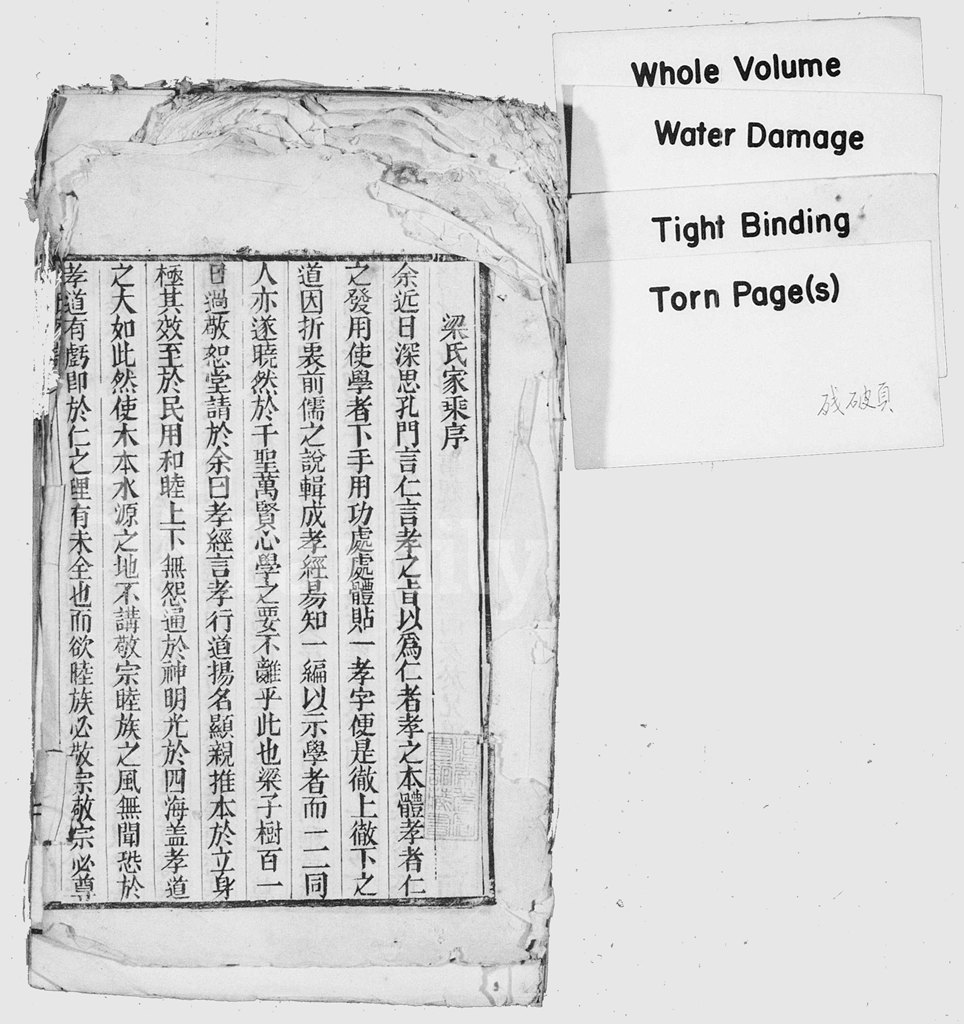 梁氏家乘序
余近日深思孔門言仁言孝之旨以爲仁者孝之本體孝者仁
之發用使學者下手用功處處體貼一孝字便是徹上徹下之
道因折衷前儒之說輯成孝經易知一編以示學者而一二同
人亦遂曉然於千聖萬賢心學之要不離乎此也梁子樹百一
日過敬恕堂請於余曰孝經言孝行道揚名顯親推本於立身
極其效至於民用和睦上下無怨通於神明光於四海盖孝道
之大如此然使木本水源之地不講敬宗睦族之風無聞恐於
孝道有虧即於仁之理有未全也而欲睦族必敬宗敬宗必尊
Whole Volume
Water Damage
Tight Binding
Torn Page(s)
破頁